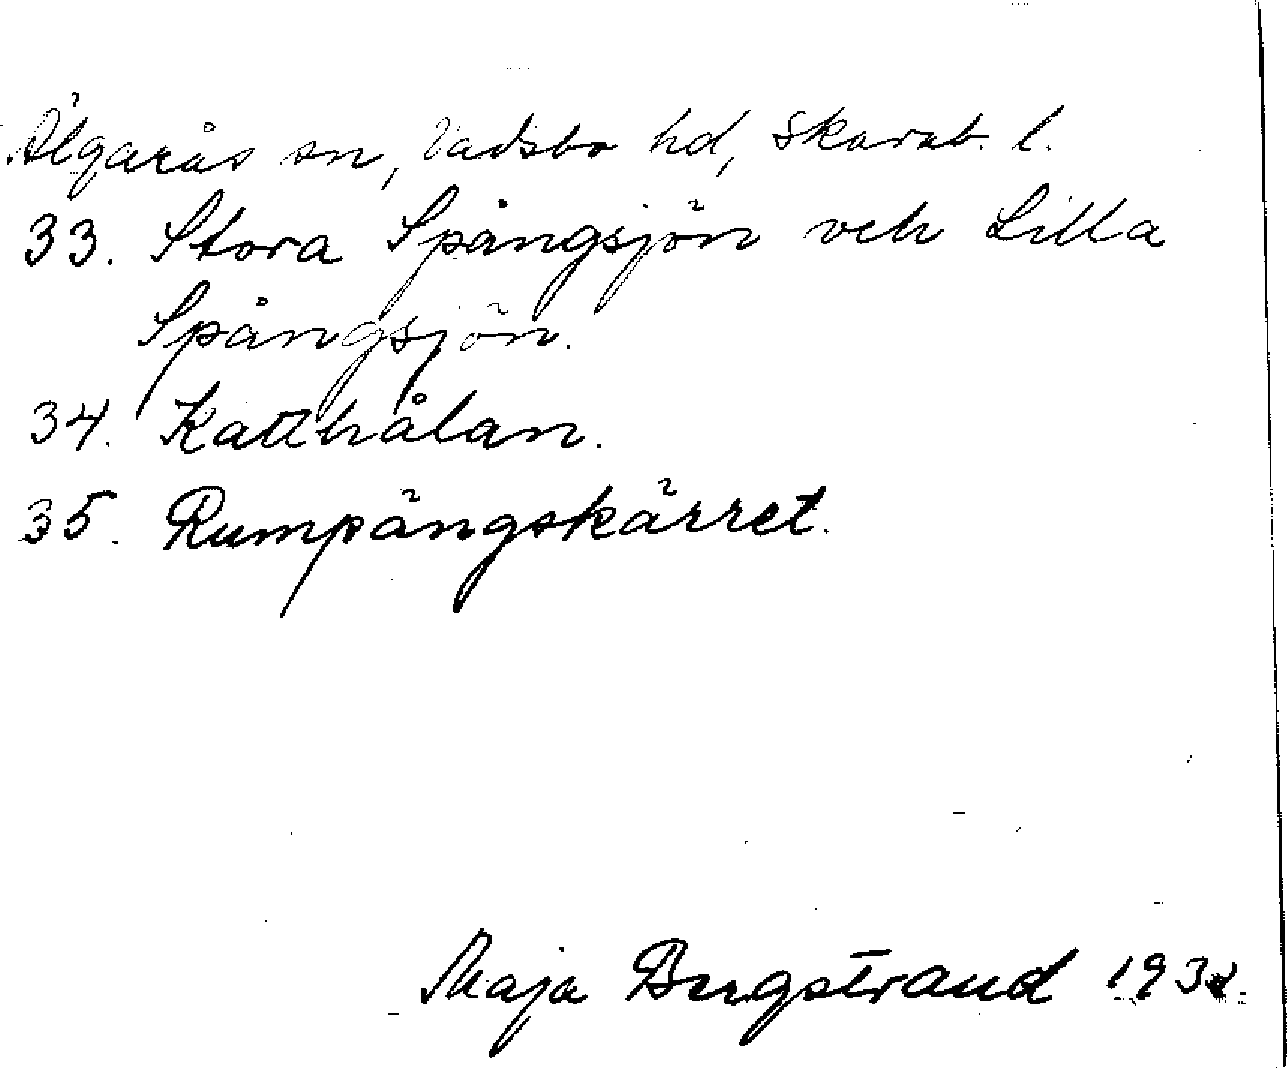 Älgarås sn, Vadsbo hd, Skarab. l.
33. Stora Spångsjön och Lilla
Spångsjön.
34. Katthålan.
35. Rumpängskärret.
Maja Bergstrand